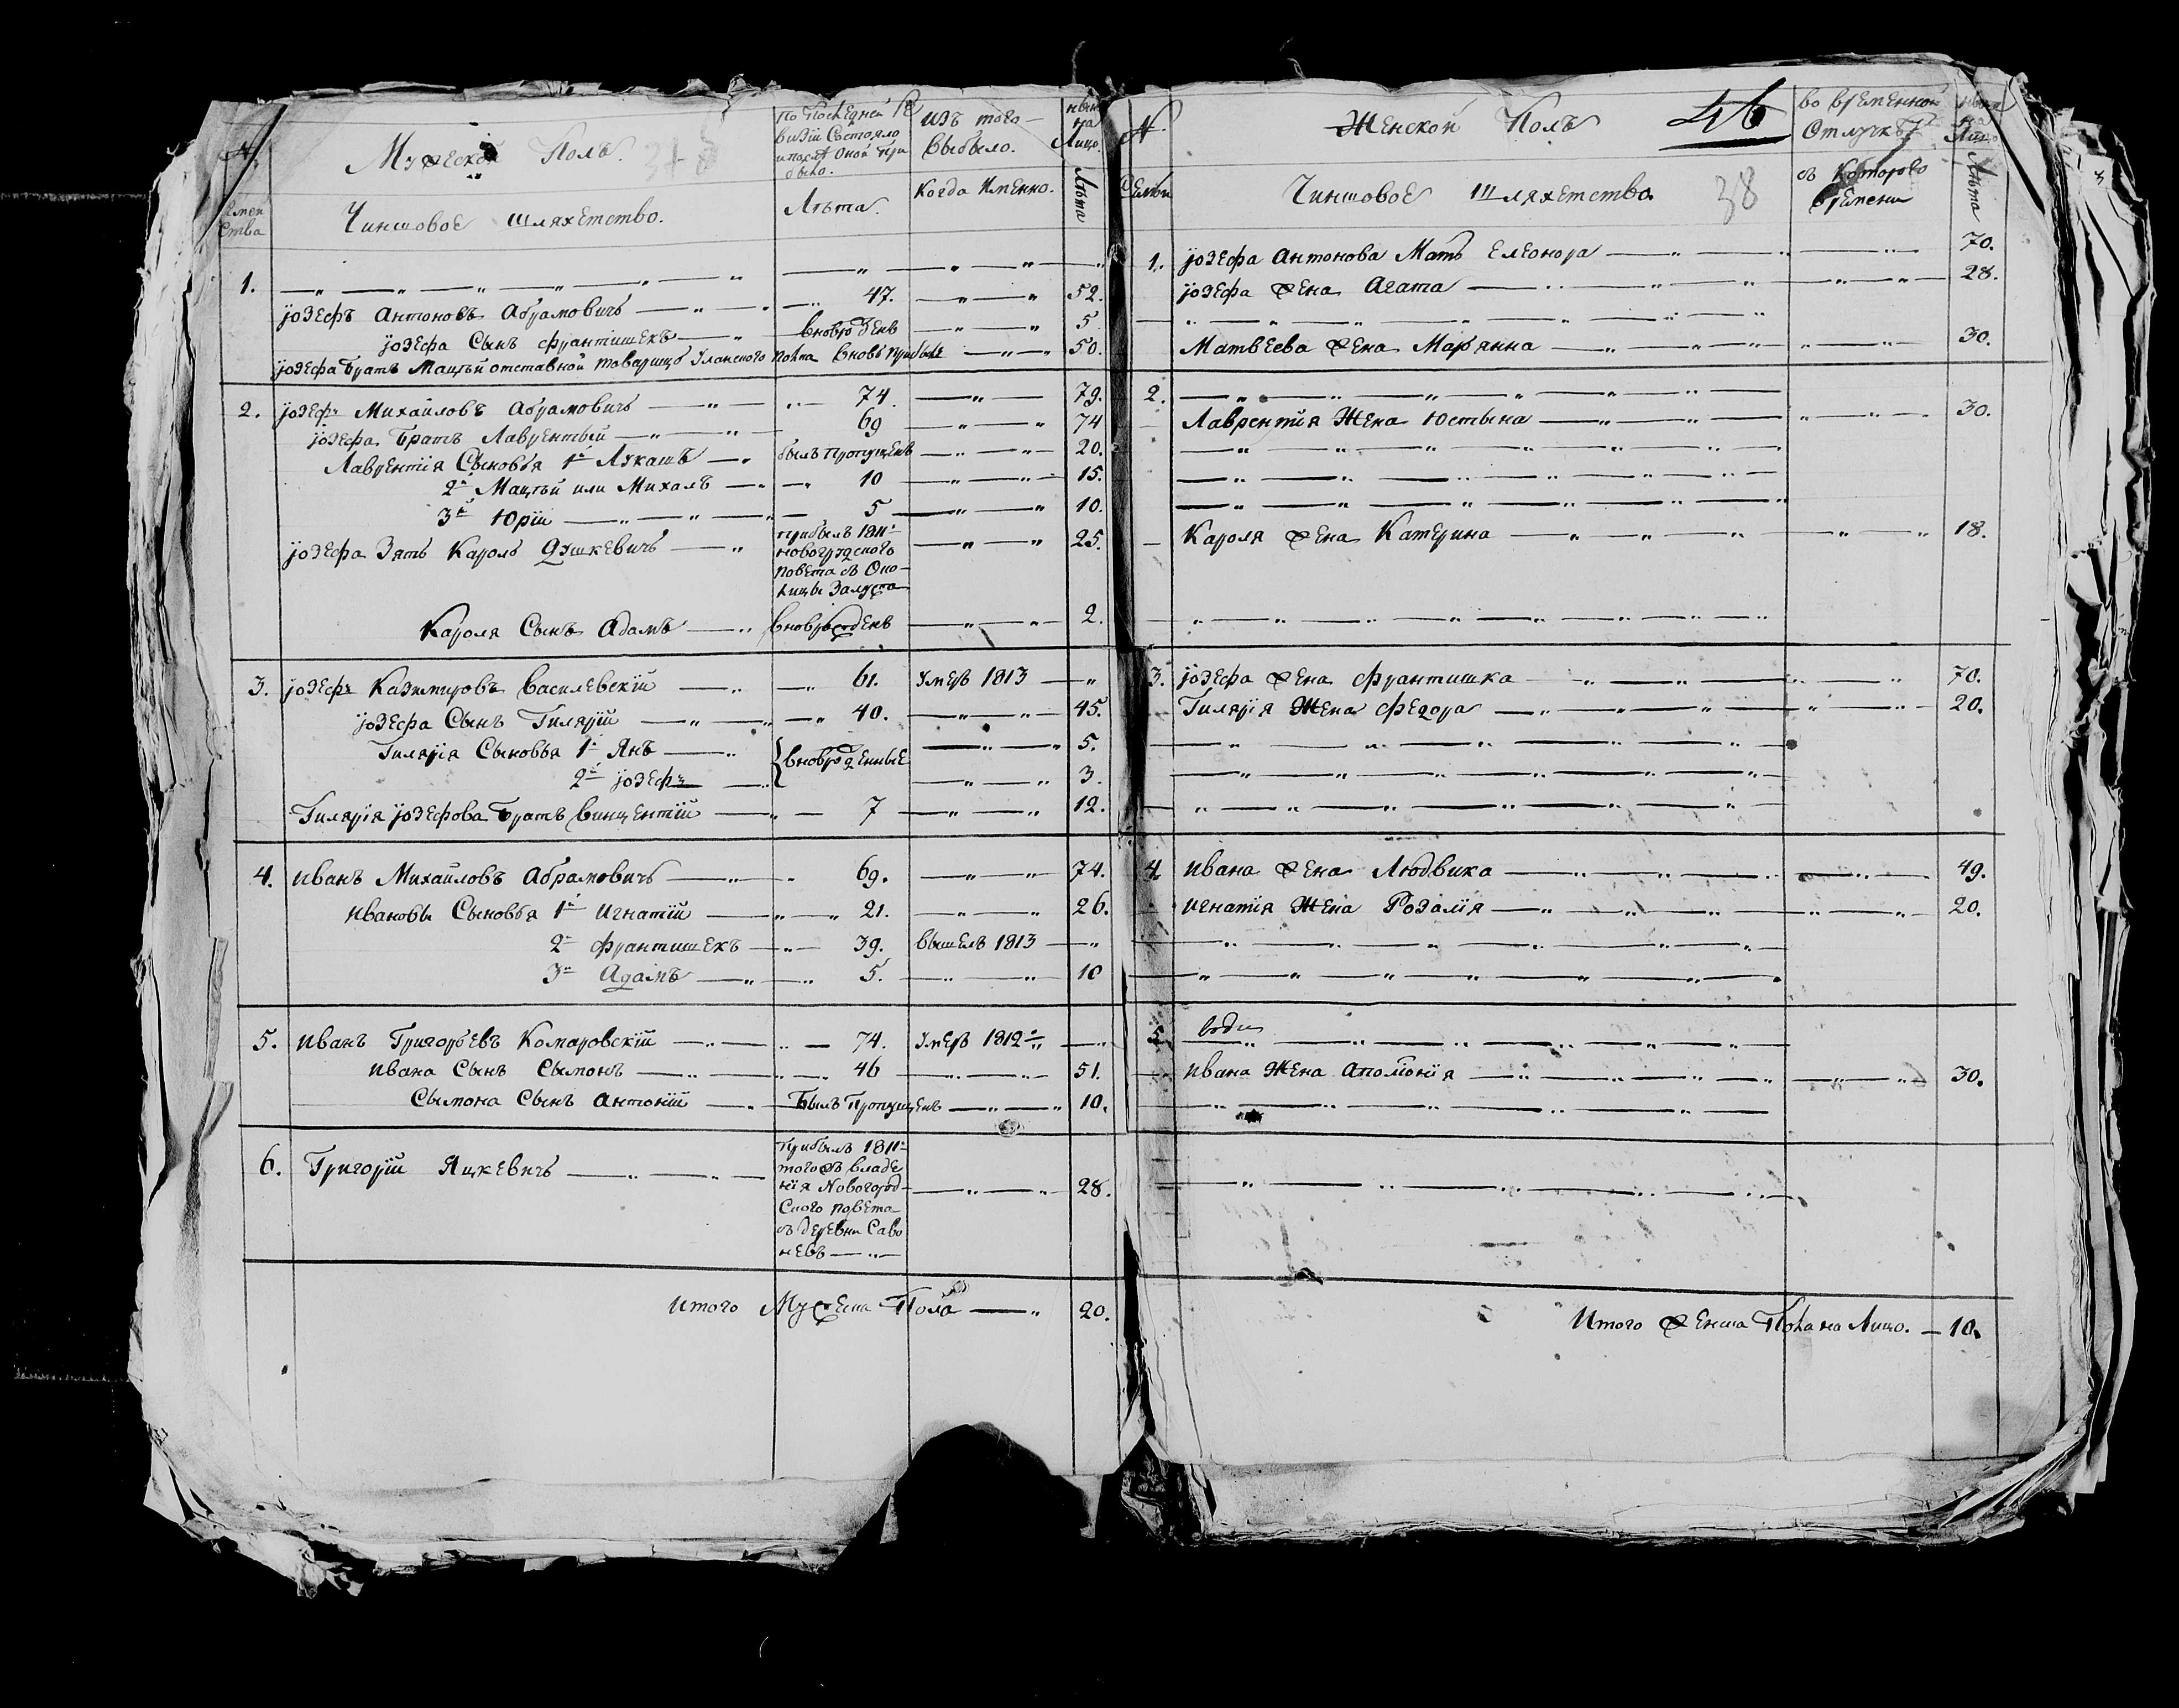 Мужеской Полъ.
Чиншовое шляхетство.
№
по Последней Ре
визіи Состояло
и после Оной При
было.
Лѣта.
изъ того
выбыло.
Когда Именно.
Лицо.
Лѣта
1.
Іозефъ Антоновъ Абрамовичъ 47. 52.
Іозефа Сынъ Францишекъ вновьрожденъ 5
Іозефа Братъ Мацѣй отставной товарищъ Уланского полка вновь прибылъ 50.
2. Іозефъ Михайловъ Абрамовичъ 74. 79.
Іозефа Братъ Лаврентый 69 74
Лаврентія Сыновья 1й Лукашъ былъ пропущенъ 20.
2й Мацѣй или Михалъ 10 15.
3й Юрій 5 10.
Іозефа Зять Кароль Душкевичъ
прибылъ 1811
новогрудского
повета съ Око
лицы
25.
Кароля Сынъ Адамъ вноврожденъ 2.
3. Іозефъ Казимировъ Василевскій 61. умеръ 1813
Іозефа Сынъ Гиларій 40. 45.
Гиларія Сыновья 1й Янъ вноврожденные 5.
2й Іозефъ 3.
Гиларія Іозефова Братъ Винцентій 7 12.
4. Иванъ Михайловъ Абрамовичъ 69. 74.
Ивановы Сыновья 1й Игнатій 21. 26.
2й Францишекъ 39. вышелъ 1813
3й Адамъ 5. 10
5. Иванъ Григорьевъ Комаровскій 74. умеръ 1812
Ивана Сынъ Сымонъ 46 51.
Сымона Сынъ Антоній Былъ Пропущенъ 10.
6. Григорій Яцкевичъ
прибылъ 1811
тогожъ владе
нія Новогород
Ского повета
съ деревни Саво
невъ
28.
Итого Мужеска Пола 20.
№
Женской Полъ
46
Чиншовое Шляхетство.
38
во временной
Отлучкѣ
съ Которого
времени
Лѣта
1. Іозефа Антонова Мать Елеонора 70.
Іозефа Жена Агата 28.
Матвеева Жена Марянна 30.
2.
Лаврентія Жена Юстына 30.
Кароля Жена Катерина 18.
3. Іозефа Жена Францишка 70.
Гиларія Жена Федора 20.
4. Ивана Жена Людвика 49.
Игнатія Жена Розалія 20.
5.
Ивана Жена Аполіонія 30.
Итого Женска Пола на Лицо. 10.